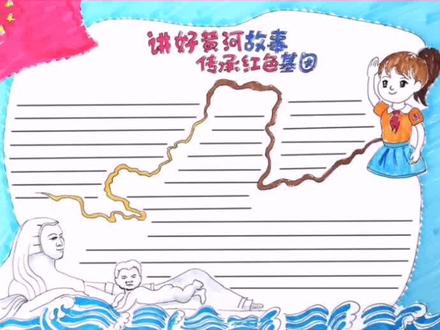 讲好黄河故事
传承红色基因